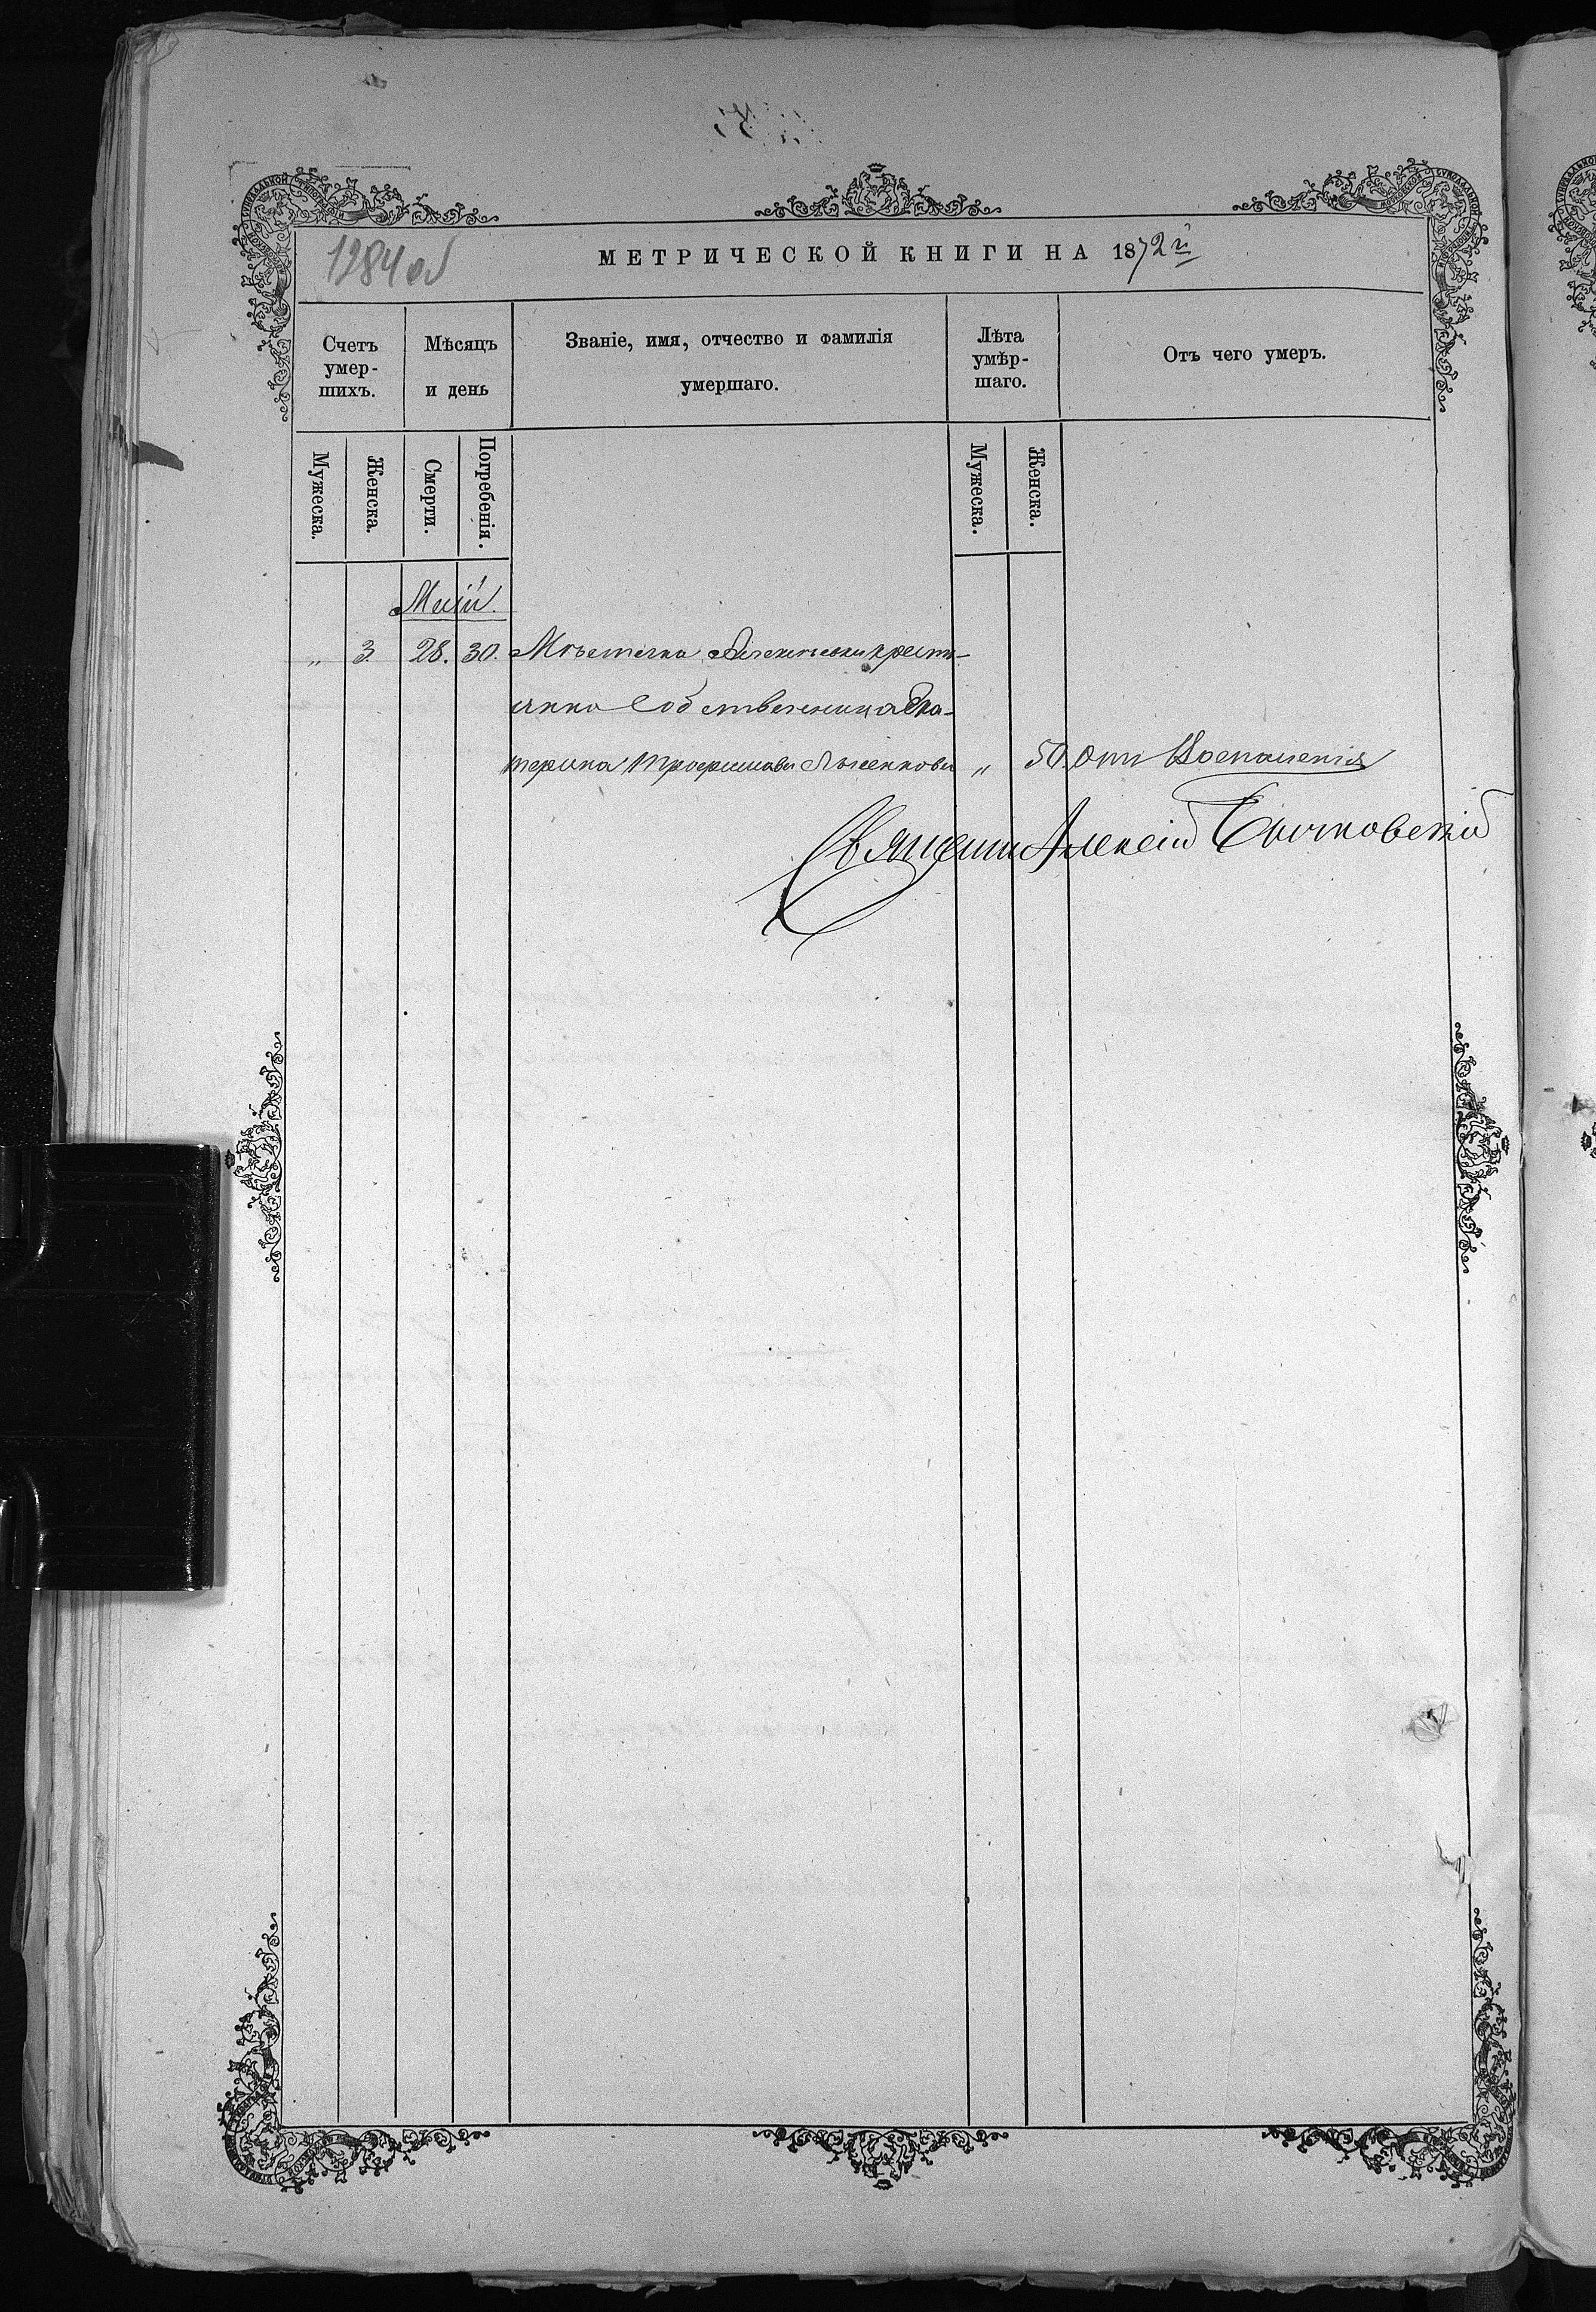 1284 об
МЕТРИЧЕСКОЙ КНИГИ НА 1872й
Счетъ умер-шихъ.
Мѣсяцъ и день
Званіе, имя, отчество и фамилія умершаго.
Лѣта умѣр-шаго.
Отъ чего умеръ.
Мужеска.
Женска.
Смерти.
Погребенія.
Мужеска.
Женска.
Маій.
„ 3. 28. 30. Мѣстечка кресть-
янка Собственница Ека-
терина Трофимова „ 50. Отъ Воспаленія
Священн Алексій